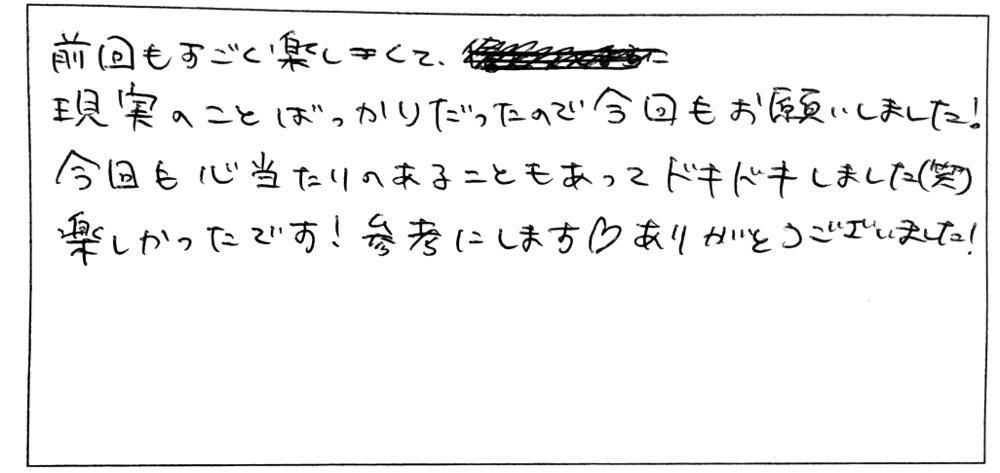 前回もすごく楽しくて、
現実のことばっかりだったので今回もお願いしました!
今回も心当たりのあることもあってドキドキしました(笑)
楽しかったです!参考にします♡ありがとうございました!